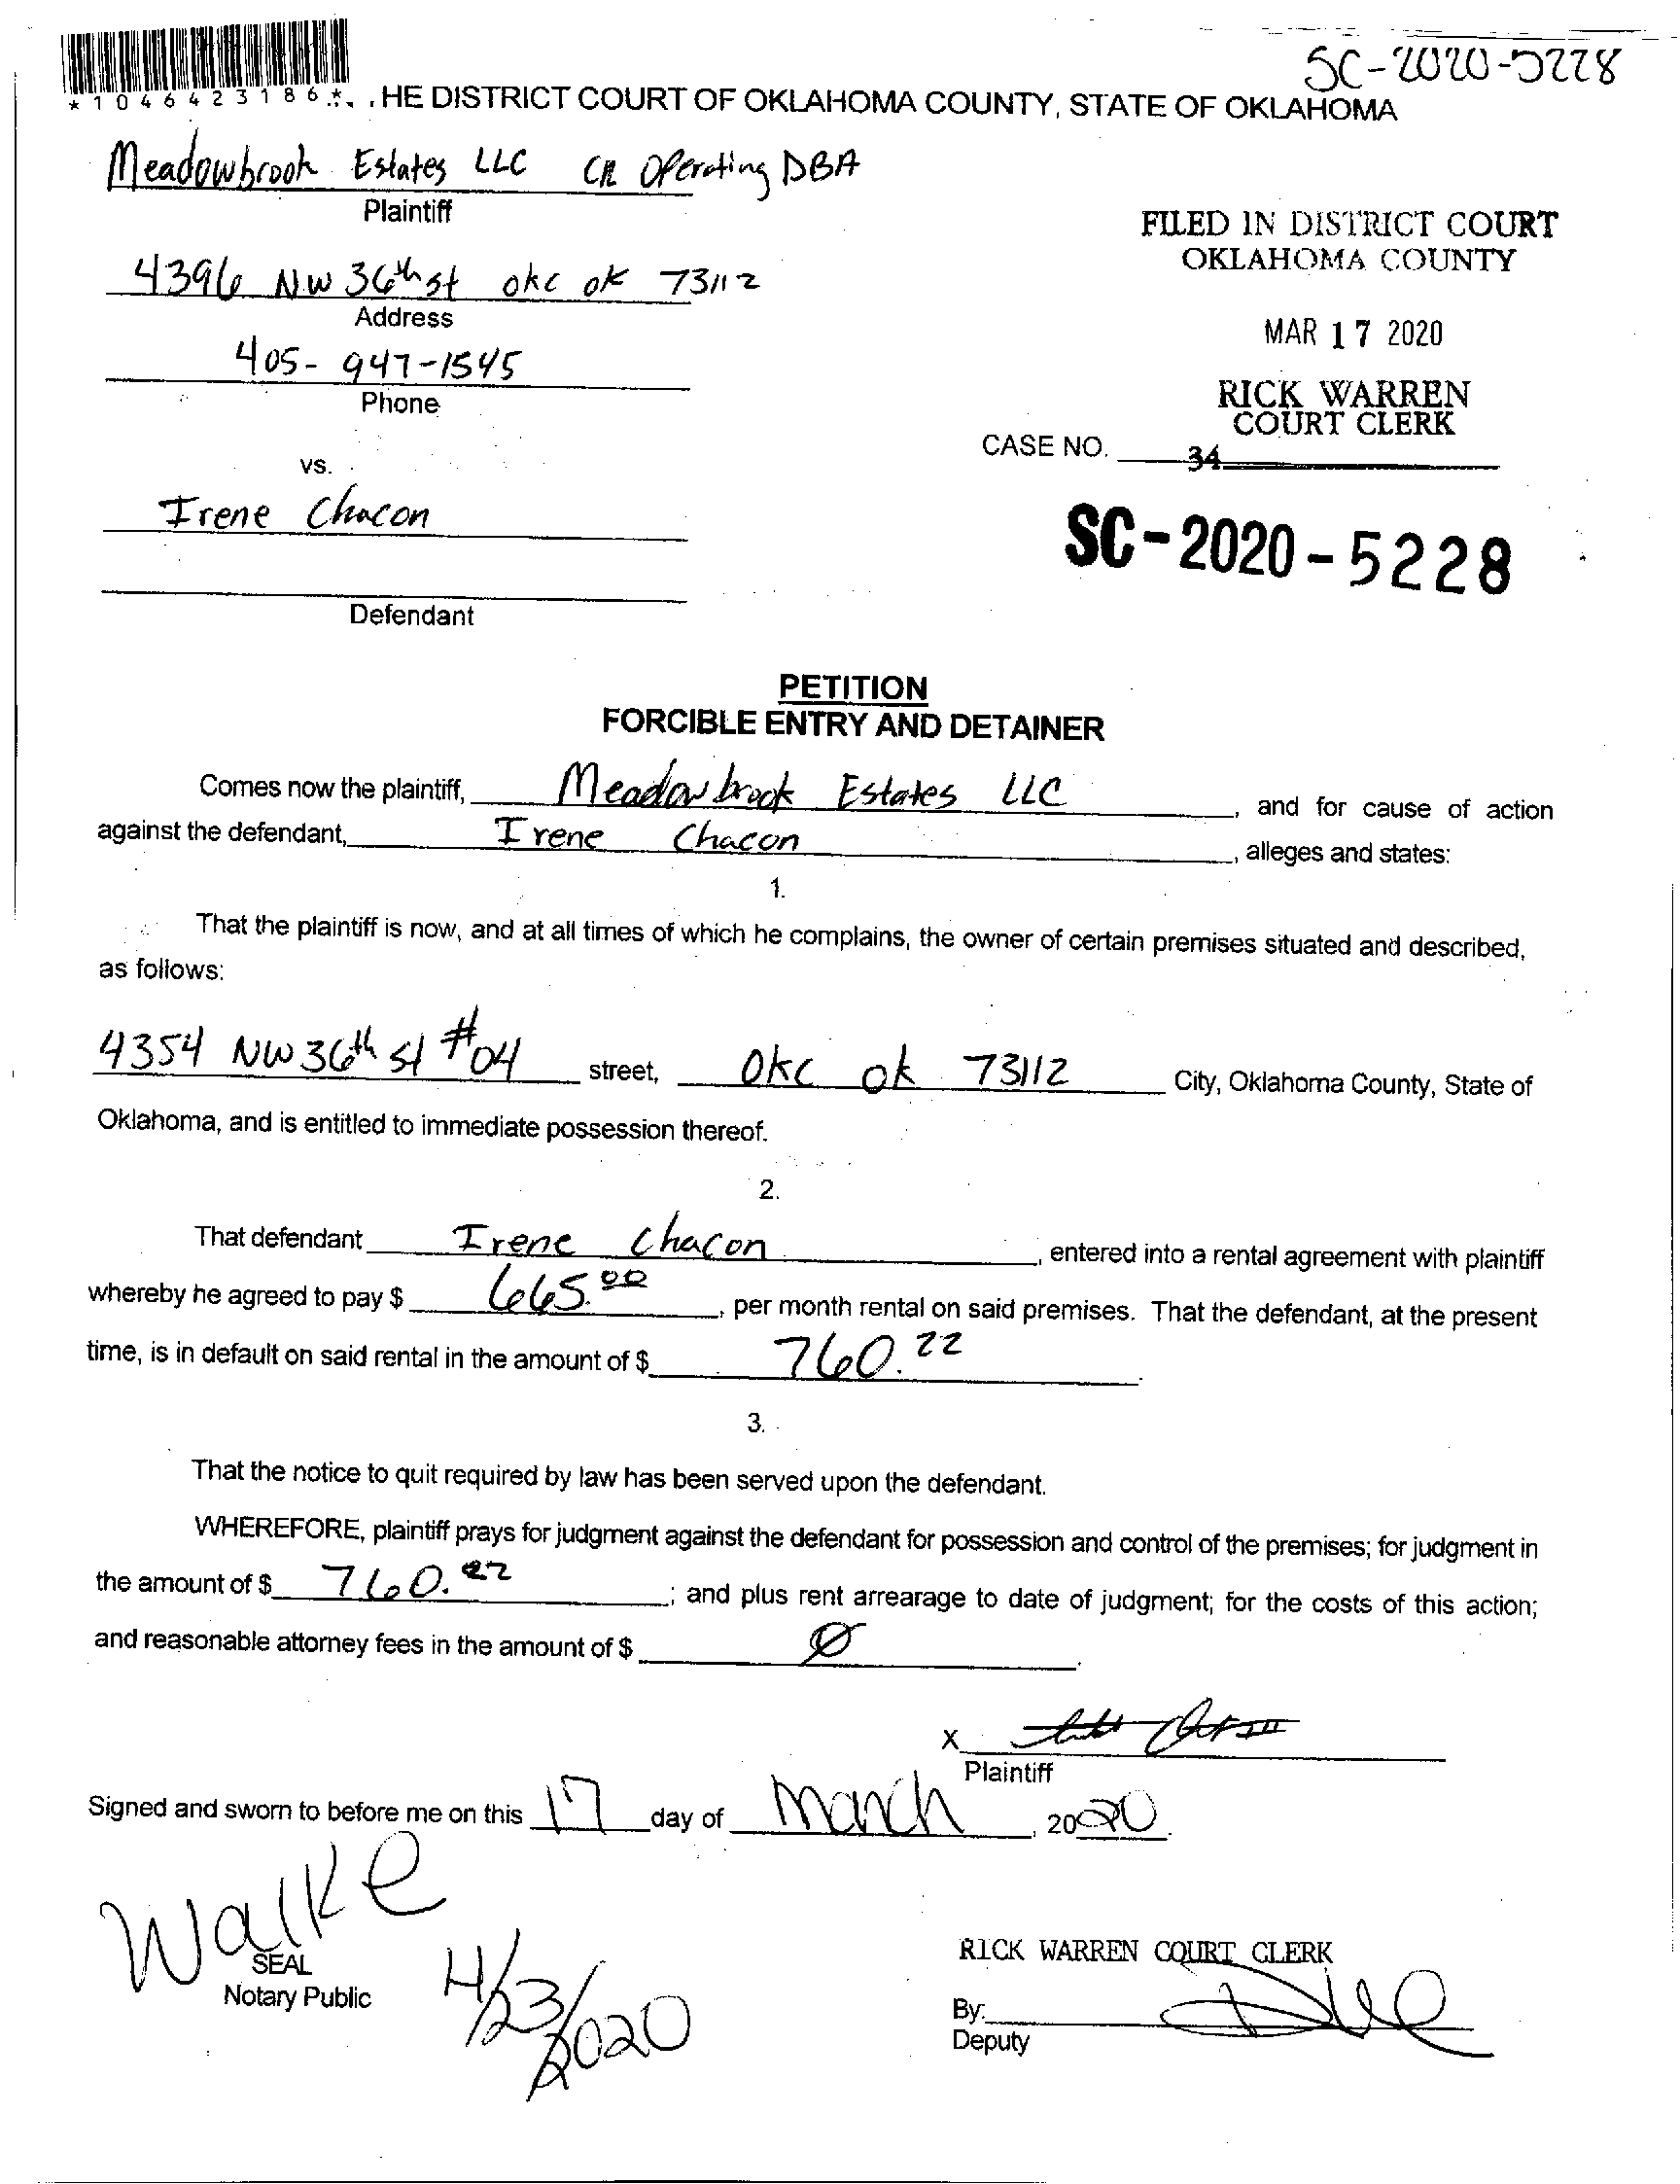 SC-2020-5228
*1046423186*
HE DISTRICT COURT OF OKLAHOMA COUNTY, STATE OF OKLAHOMA
Meadowbrook Estates LLC CR Operating DBA
Plaintiff
4396 NW 36th st okc ok 73112
Address
405-947-1545
Phone
FILED IN DISTRICT COURT
OKLAHOMA COUNTY
MAR 17 2020
RICK WARREN
COURT CLERK
CASE NO. 34
vs.
Irene Chacon
SC-2020-5228
Defendant
PETITION
FORCIBLE ENTRY AND DETAINER
Comes now the plaintiff, Meadowbrook Estates LLC, and for cause of action
against the defendant, Irene Chacon, alleges and states:
1.
That the plaintiff is now, and at all times of which he complains, the owner of certain premises situated and described,
as follows:
4354 NW 36th st #04 street, OKC ok 73112 City, Oklahoma County, State of
Oklahoma, and is entitled to immediate possession thereof.
2.
That defendant Irene Chacon, entered into a rental agreement with plaintiff
whereby he agreed to pay $ 665.00, per month rental on said premises. That the defendant, at the present
time, is in default on said rental in the amount of $ 760.22.
3.
That the notice to quit required by law has been served upon the defendant.
WHEREFORE, plaintiff prays for judgment against the defendant for possession and control of the premises; for judgment in
the amount of $ 760.22; and plus rent arrearage to date of judgment; for the costs of this action;
and reasonable attorney fees in the amount of $ Ø.
X
Plaintiff
Signed and sworn to before me on this 17 day of March, 2020.
Walke
SEAL
Notary Public
4/23/2020
RICK WARREN COURT CLERK
By:
Deputy